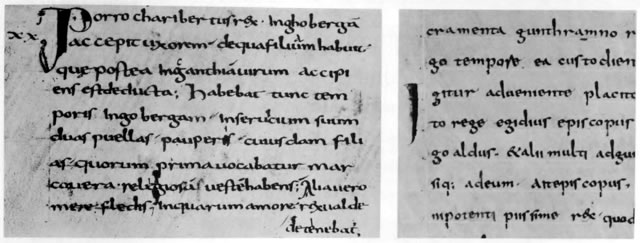 xx
Porro charibertus rex · Inghobergā
accepit uxorem · de qua filium habuit
que postea in ganthia virum accipi
ens est deducta; habebat tunc tem
poris Ingobergam · Inservicium suum
duas puellas · pauperis cuiusdam fili
as · quorum prima vocabatur mar
covera · religiosā vestē habens; Alia vero
merefledis; Inquarum amore rex valde
detenebat·
cramenta gunthramno r
go tempore ea custodien
Igitur adveniente placit
to rege egidius episcopus
go aldus · &alii multi adgun
siq; adeum · Aitepiscopus ·
mpotenti piissime rex quod